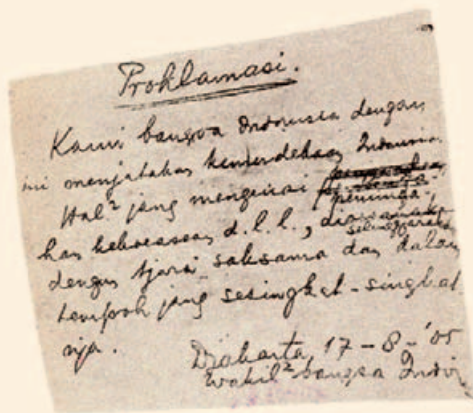 Proklamasi.
Kami bangsa Indonesia dengan
ini menjatakan kemerdekaan Indonesia.
Hal² jang mengenai
pemindah-
kan kekoeasaan d.l.l., diselenggarakan
dengan tjara saksama dan dalam
tempoh jang sesingkat-singkat
nja.
Djakarta, 17-8-'05
Wakil² bangsa Indon